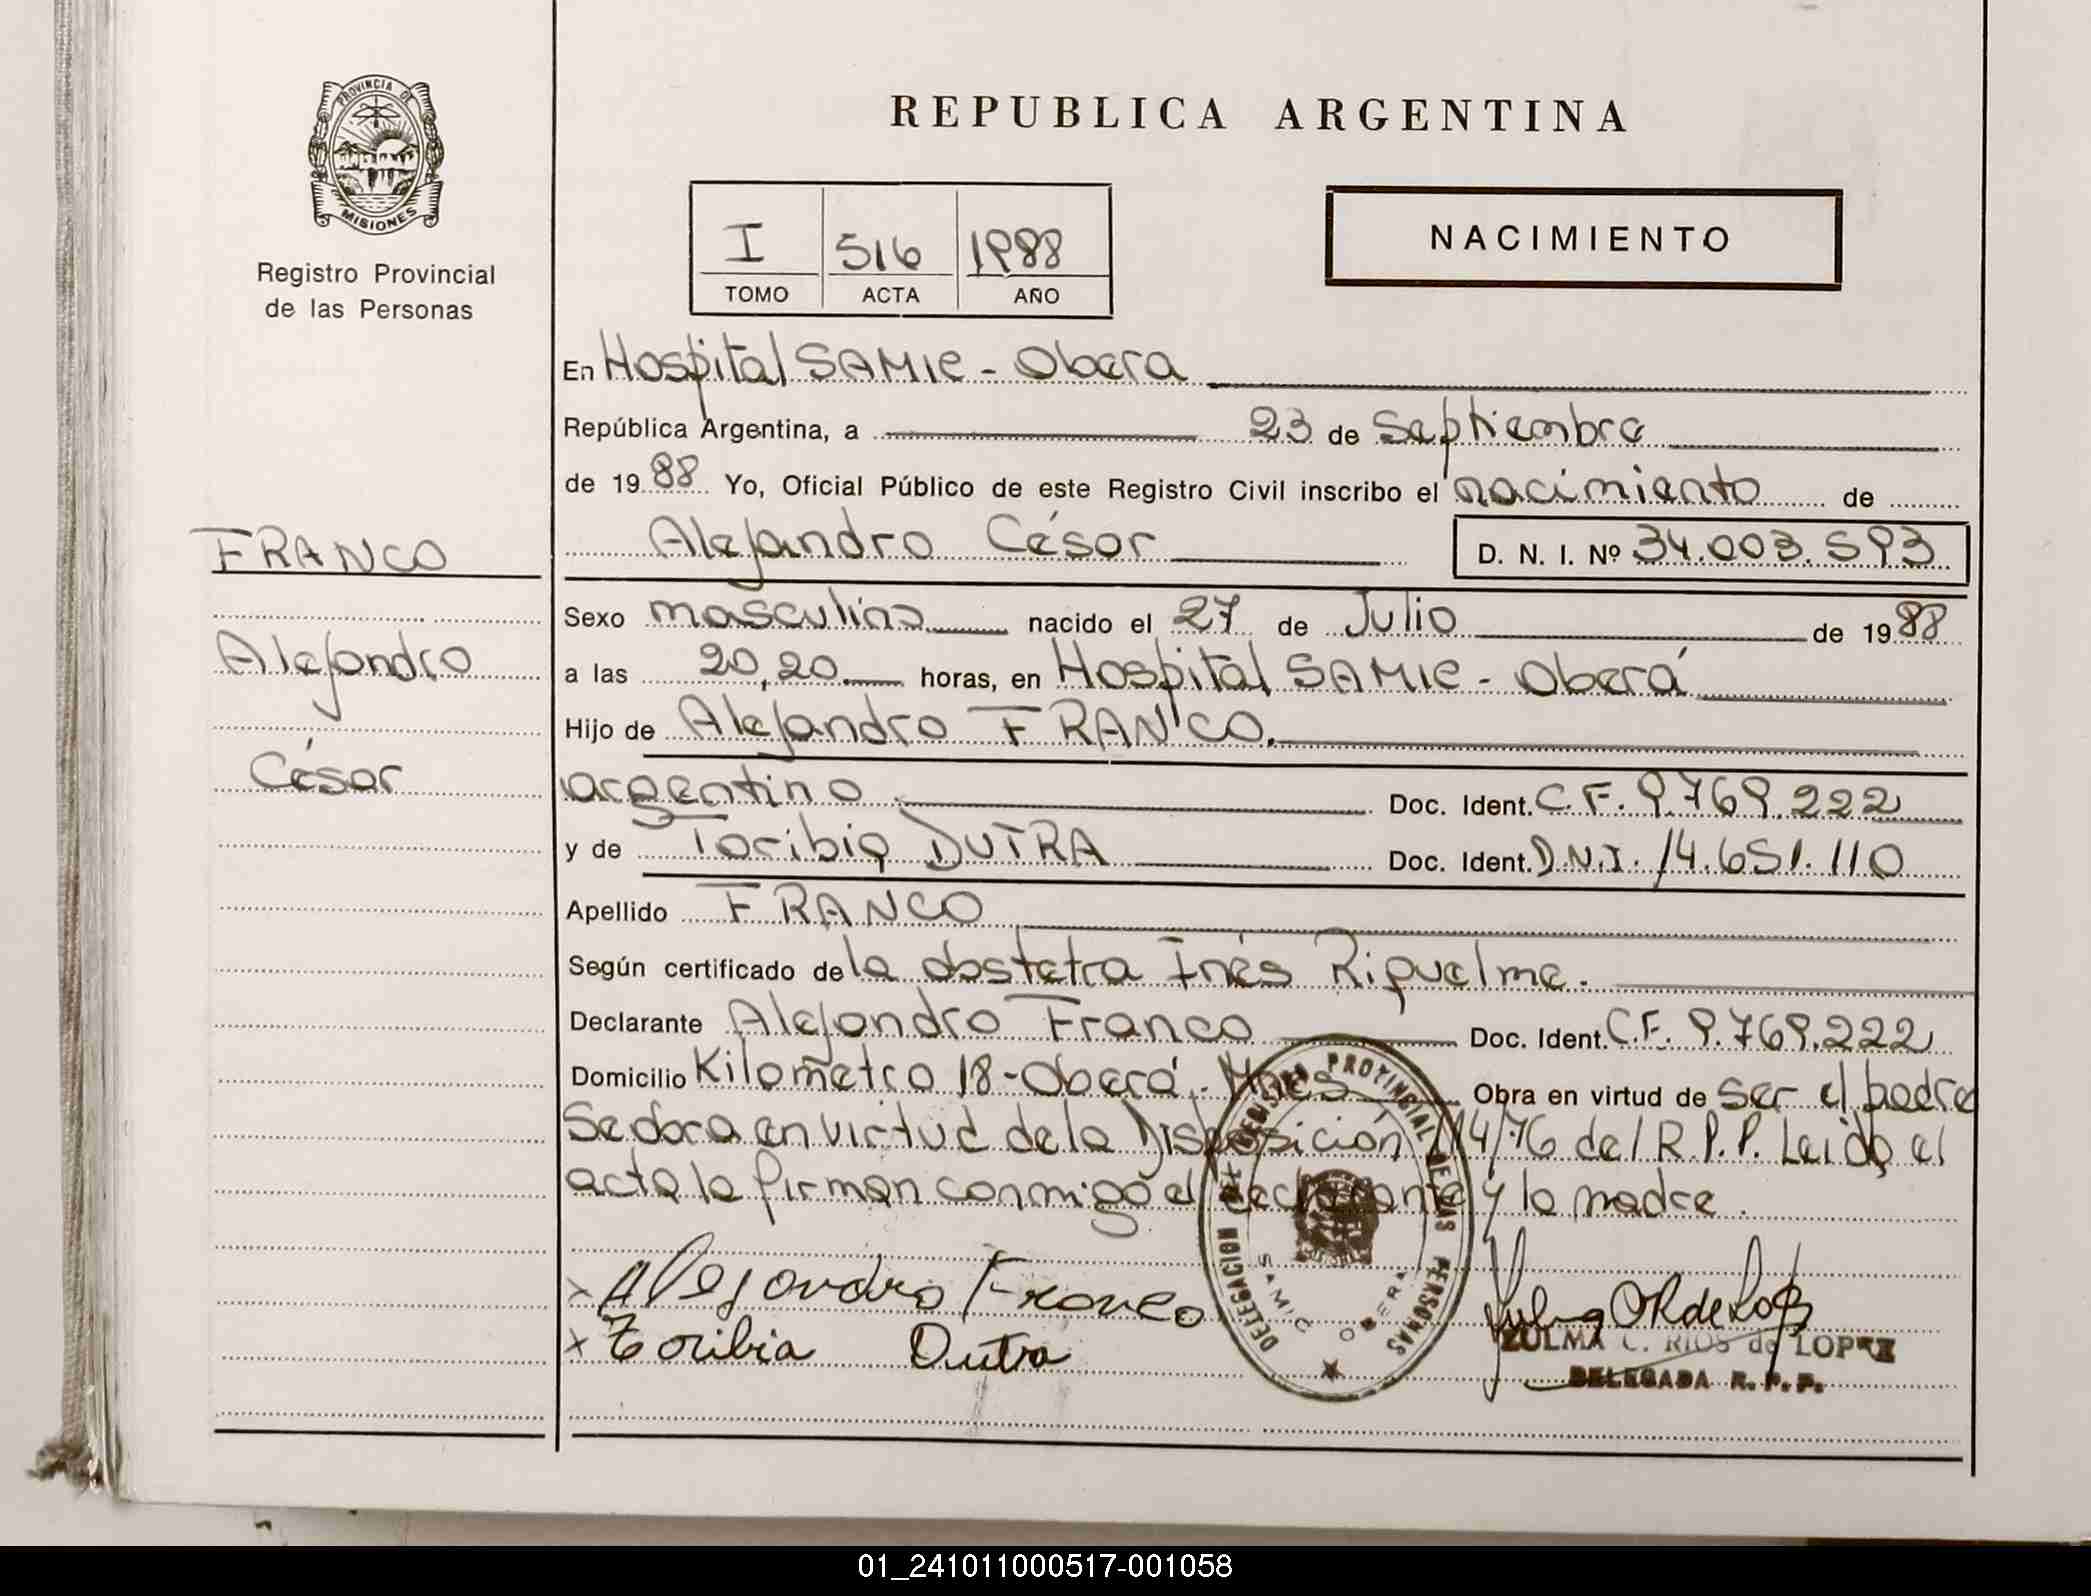 PROVINCIA DE
MISIONES
Registro Provincial
de las Personas
FRANCO
Alejandro
César
REPUBLICA ARGENTINA
I 516 1988
TOMO ACTA AÑO
NACIMIENTO
En Hospital SAMIC - Obera
República Argentina, a 23 de Septiembre
de 1988 Yo, Oficial Público de este Registro Civil inscribo el nacimiento de
Alejandro César D. N. I. Nº 34.003.593
Sexo masculino nacido el 27 de Julio de 1988
a las 20,20 horas, en Hospital SAMIC - Oberá
Hijo de Alejandro FRANCO.
argentino Doc. Ident. C.F. 9.769.222
y de Toribia DUTRA Doc. Ident. D.N.I. 14.651.110
Apellido FRANCO
Según certificado de la obstetra Inés Riquelme.
Declarante Alejandro Franco Doc. Ident. C.F. 9.769.222
Domicilio Kilometro 18 - Oberá - Mnes Obra en virtud de ser el padre
Se labra en virtud de la Disposición 114/76 del R.P.P. Leida el
acta la firman conmigo el declarante y la madre.
x Alejandro Franco
x Toribia Dutra
DELEGACION DEL REGISTRO PROVINCIAL DE LAS PERSONAS
SAMIC OBERA
ZULMA C. RIOS de LOPEZ
DELEGADA R. P. P.
01_241011000517-001058